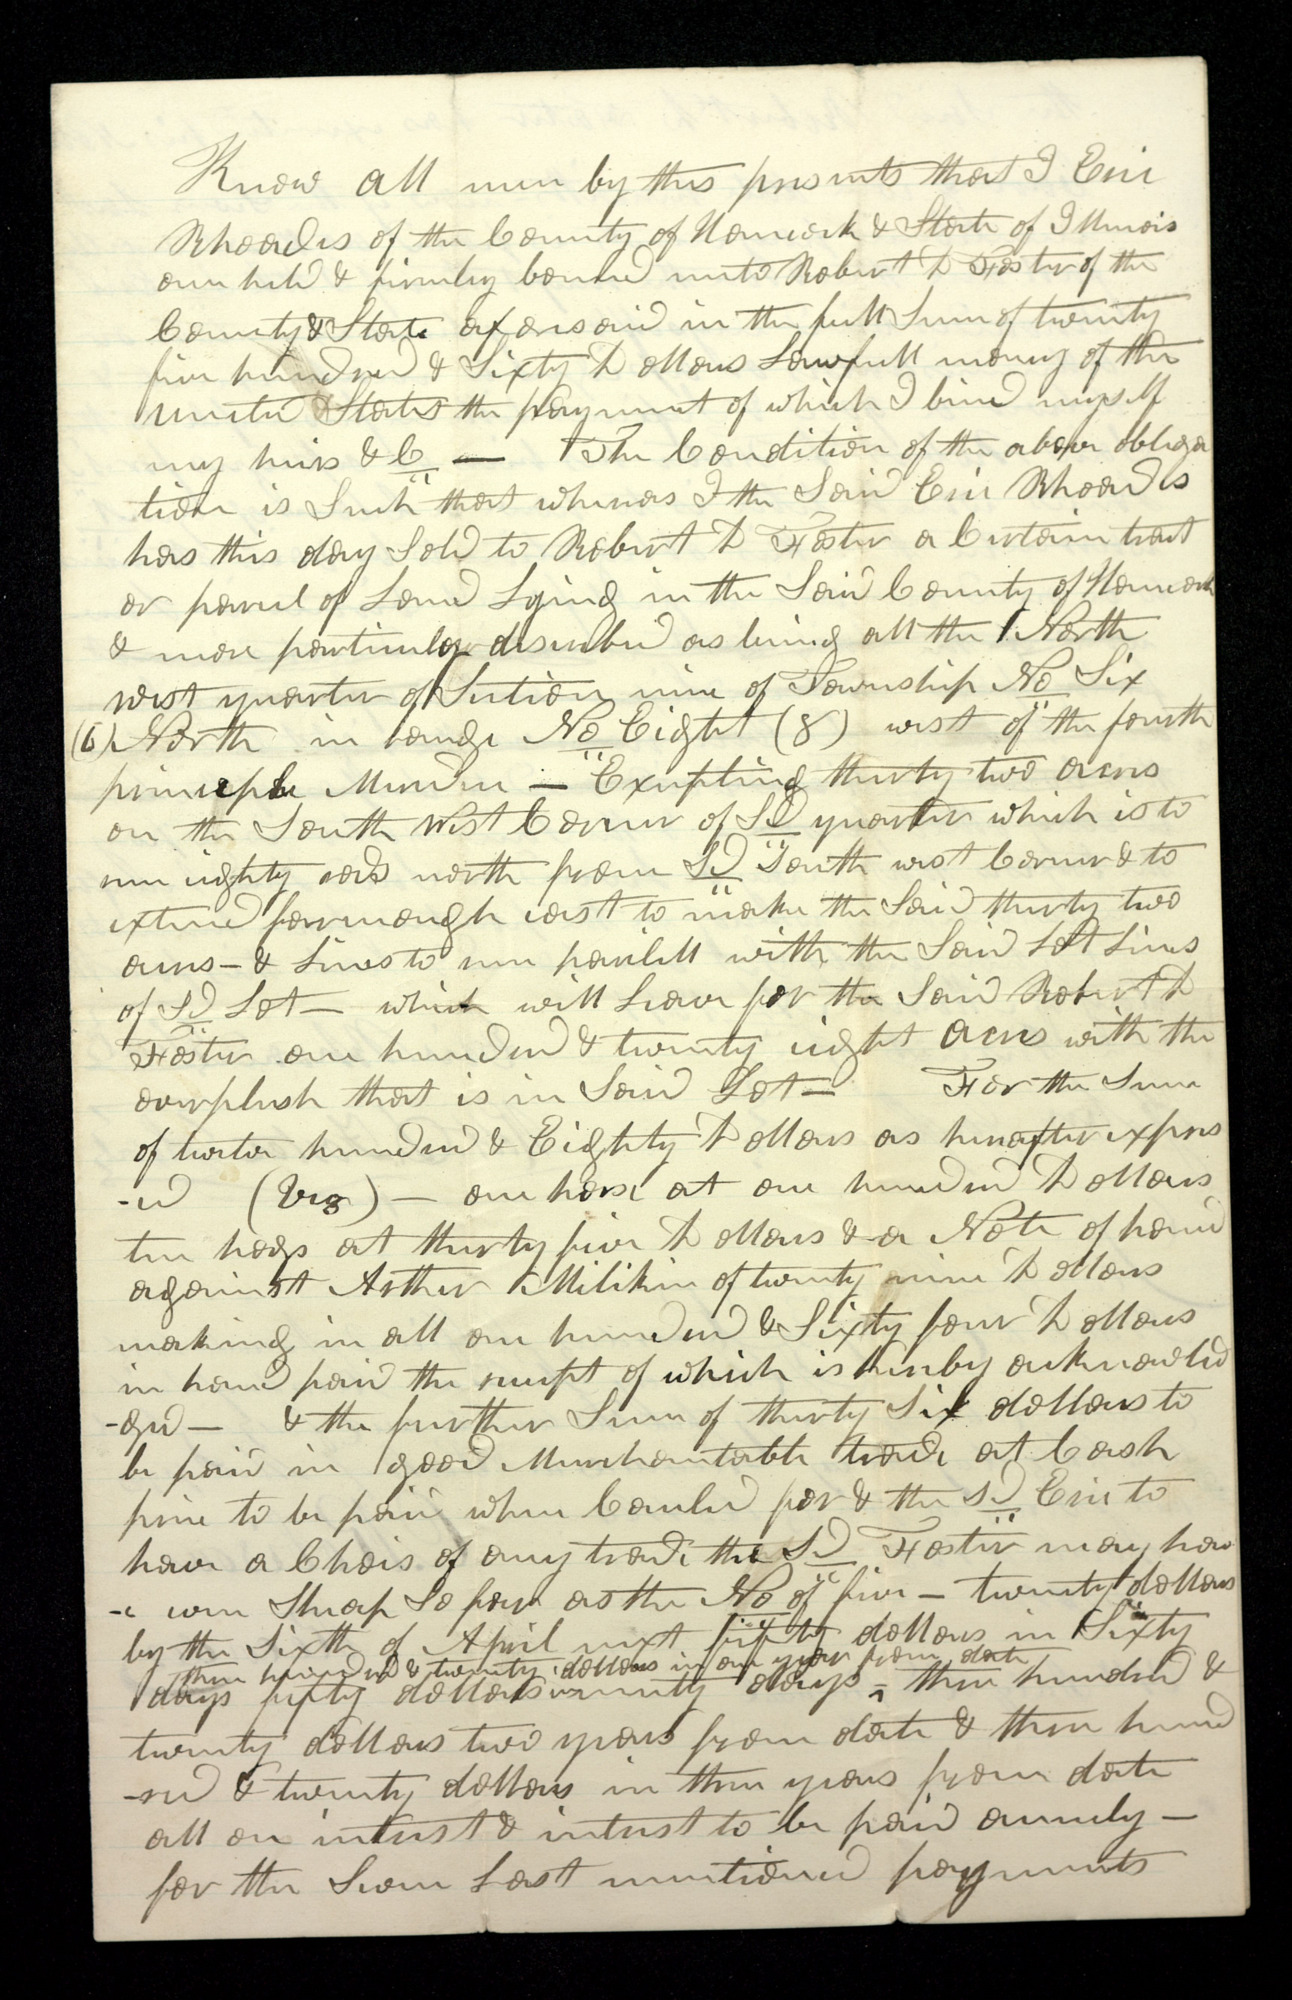 Know all men by this presents that I Eric
Rhoades of the County of Hancock & State of Illinois
am held & firmley bound unto Robert D Foster of the
County & State afforesaid in the full Sum of twenty
five hundred & Sixty Dollars Lawfull money of the
United States the payment of which I bind myself
my heirs &C — The Condition of the above obliga
tion is Such that whereas I the Said Eric Rhoades
has this day Sold to Robert D Foster a Certain tract
or parcel of Land Lying in the Said County of Hancock
& more particulay discribed as being all the North
west quarter of Section nine of Township No Six
(6) North in range No Eight (8) west of the fourth
principle Meridin — Excepting thirty two acres
on the South West Corner of Sd quarter which is to
run eighty rods north from Sd South west Corner & to
extend farr enough east to make the Said thirty two
acres — & Lines to run parilell with the Said Lot Lines
of Sd Lot — which will Leave for the Said Robert D
Foster one hundred & twenty eight acres with the
overplush that is in Said Lot — For the Sum
of twelve hundred & Eighty Dollars as hereafter expres
-ed (Viz) — one horse at one hundred Dollars
ten hogs at thirty five Dollars & a Note of hand
against Arther Milikin of twenty nine Dollars
making in all one hundred & Sixty four Dollars
in hand paid the receipt of which is hereby acknowled
-ged — & the further Sum of thirty Six dollars to
be paid in good Merchantable trade at Cash
price to be paid when Cauled for & the Sd Eric to
have a Chois of any trade the Sd Foster may hav
-e even Sheap So far as the No of five — twenty dollars
by the Sixth of April next fifty dollars in Sixty
three hundred & twenty dollars in one year from date
days fifty dollars in ninety days ‸ three hundred &
twenty dollars two years from date & three hund
-red & twenty dollars in three years from date
all on intrest & intrest to be paid annuly —
for the Seven Last mentioned payments